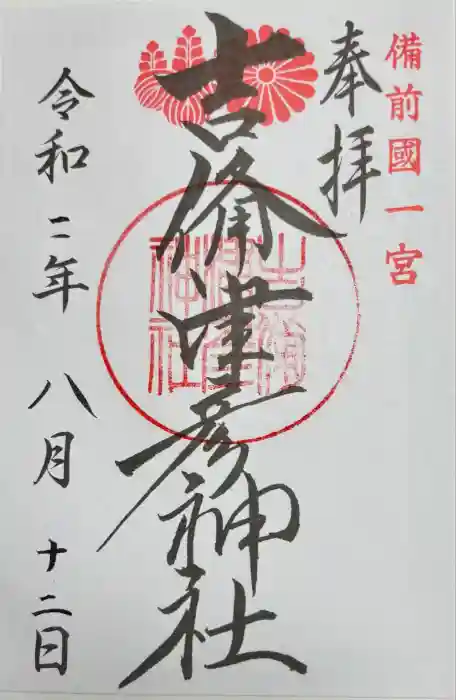 備前國一宮
奉拝
吉備津彦神社
吉備津彦神社
令和二年 八月 十二日